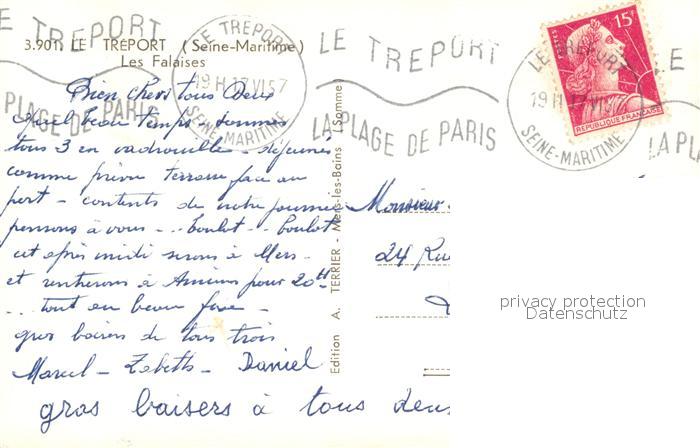 3.901. LE TRÉPORT (Seine-Maritime)
Les Falaises
LE TREPORT
LA PLAGE DE PARIS
LE TREPORT
19 H 17 VI 57
SEINE-MARITIME
LE TREPORT
LA PLAGE DE PARIS
LE TREPORT
19 H 17 VI 57
SEINE-MARITIME
LE
LA PLA
15F
POSTES
REPUBLIQUE FRANÇAISE
Bien chers tous Deux
beau temps sommes
tous 3 en vadrouille - déjeunés
comme prévu terrasse face au
port - contents de notre journée
pensons à vous - .. boulot - boulot
cet après midi serons à Mers -
et rentrerons à Amiens pour 20H
... tout en beau fixe -
gros baisers de tous trois
Marcel - Zabeth - Daniel
gros baisers à tous deu
Edition A. TERRIER - Mers-les-Bains (Somme)
Monsieur
24 Rue
privacy protection
Datenschutz